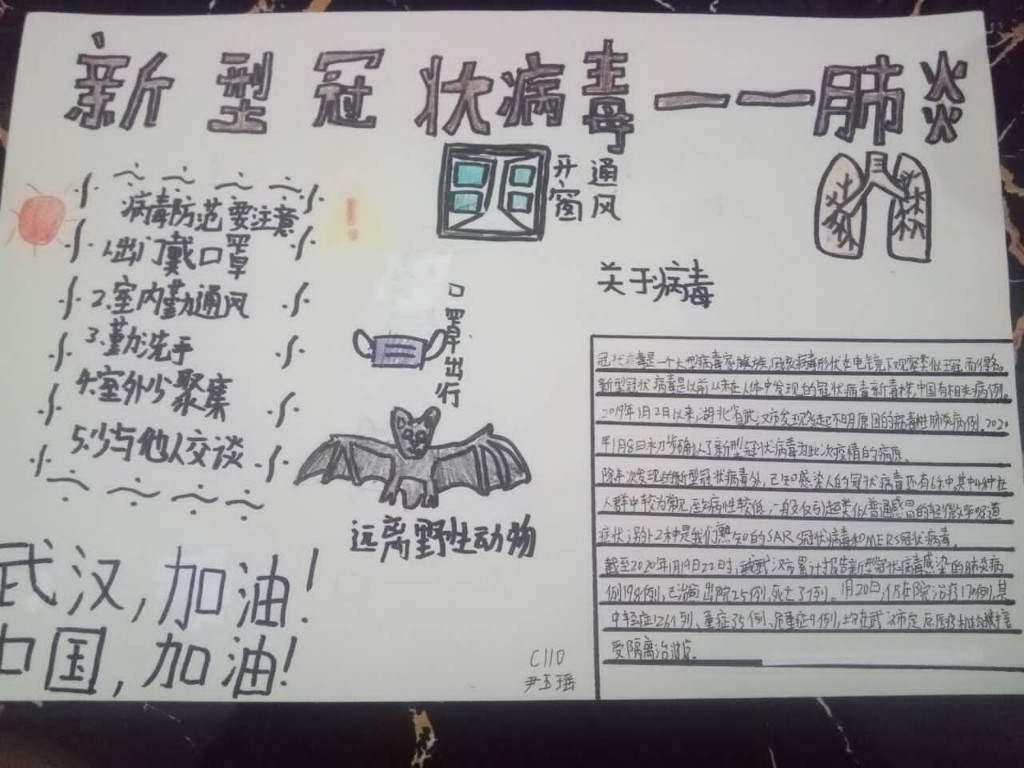 新型冠状病毒——肺炎
病毒防范要注意
!
1.出门戴口罩
2.室内勤通风
3.勤洗手
4.室外少聚集
5.少与他人交谈
开窗
通风
口罩出行
远离野生动物
武汉,加油!
中国,加油!
C110
尹玉瑶
关于病毒
冠状病毒是一个大型病毒家族,因该病毒形状在电镜下观察类似王冠而得名。
新型冠状病毒是以前从未在人体中发现的冠状病毒新毒株,中国有相关病例。
2019年1月2日以来,湖北省武汉市发现多起不明原因的病毒性肺炎病例。2020
年1月8日初步确认了新型冠状病毒为此次疫情的病原。
除本次发现的新型冠状病毒外,已知感染人的冠状病毒还有6种,其中4种在
人群中较为常见,致病性较低,一般仅引起类似普通感冒的轻微呼吸道
症状,另外2种是我们熟知的SARS冠状病毒和MERS冠状病毒。
截至2020年1月19日22时,武汉市累计报告新型冠状病毒感染的肺炎病
例198例,已治愈出院25例,死亡3例。1月20日,仍在院治疗170例,其
中轻症126例、重症35例、危重症9例,均在武汉市定点医疗机构接
受隔离治疗。